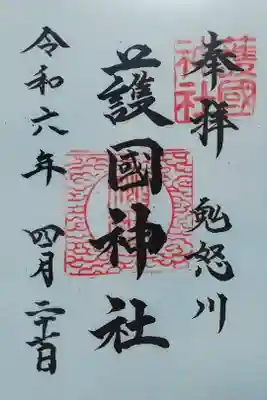 奉拝 鬼怒川
護國神社
護國神社
令和六年 四月二十六日